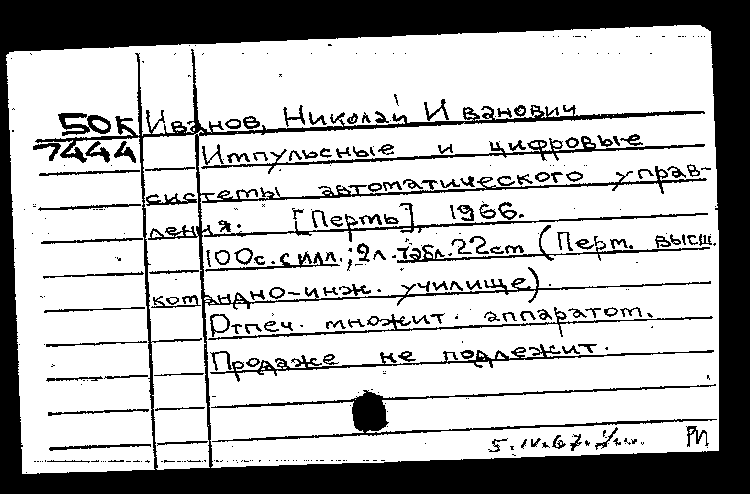 50К Иванов, Николай Иванович
7444 Импульсные и цифровые
системы автоматического управ-
ления. [Пермь], 1966.
100с. с илл.; 2л. табл. 22см (Перм. высш.
командно-инж. училище).
Отпеч. множит. аппаратом.
Продаже не подлежит.
5.IV.67.